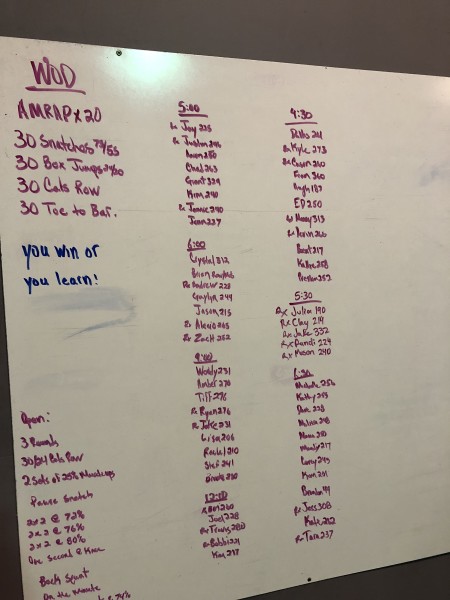 WOD
AMRAP x 20
30 Snatches 75/55
30 Box Jumps 24/20
30 Cals Row
30 Toe to Bar.
you win or
you learn!
Open:
3 Rounds
30/24 Cals Row
2 Sets of 25%
Pause Snatch
2x2 @ 72%
2x2 @ 76%
2x2 @ 80%
One Second @ Knee
Back Squat
On the Minute
5:00
Rx Joy 225
Rx Justin
Aaron 250
Chad 263
Grant 329
Kim 240
Rx Jamie 240
Jenn 237
6:00
Crystal 312
Brian
Rx Andrew 228
Guylyn 249
Jason 215
Rx Alexio 265
Rx Zach 252
9:00
Woody 231
Amber 270
Tiff 276
Rx Ryan 276
Rx Jake 231
Lisa 206
Rachel 210
Stef 241
12:00
Joel 228
Rx Travis 280
Rx Bobbi 221
Kim 247
4:30
Rx Kyle 273
Rx Casen 260
Fran 260
Hugh 187
ED 250
Rx Maey 313
Rx Devin 260
Brent 217
Kaylee 258
Preston 252
5:30
Rx Julien 190
Rx Clay 219
Rx Jake 332
Rx Randi 224
Rx Mason 240
6:30
Michelle 256
Kathy 253
Dave 228
Melissa 248
Mandy 217
Corey 243
Rx Jess 308
Kate 202
Rx Tara 237